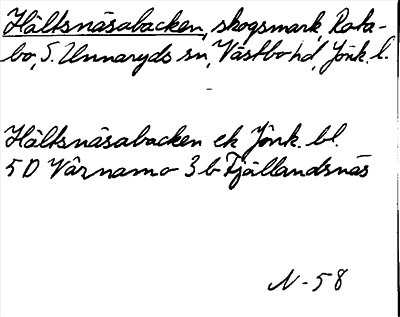 Hältsnäsabacken, skogsmark, Rata-
bo, S. Unnaryds sn, Västbo hd, Jönk. l.
Hältsnäsabacken ek Jönk. bl.
5 D Värnamo 3 b Fjällandsnäs
N-58